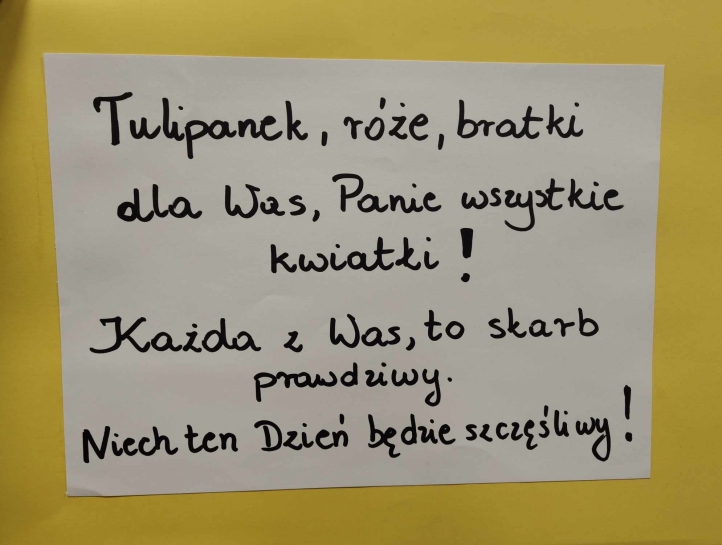 Tulipanek, róże, bratki
dla Was, Panie wszystkie
kwiatki!
Każda z Was, to skarb
prawdziwy.
Niech ten Dzień będzie szczęśliwy!